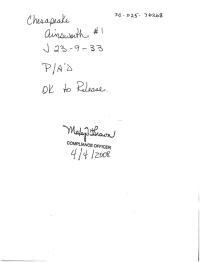 Chesapeake
30-025-30268
Ainsworth #1
J 23-9-33
P/A'D
OK to Release.
COMPLIANCE OFFICER
4/4/2008